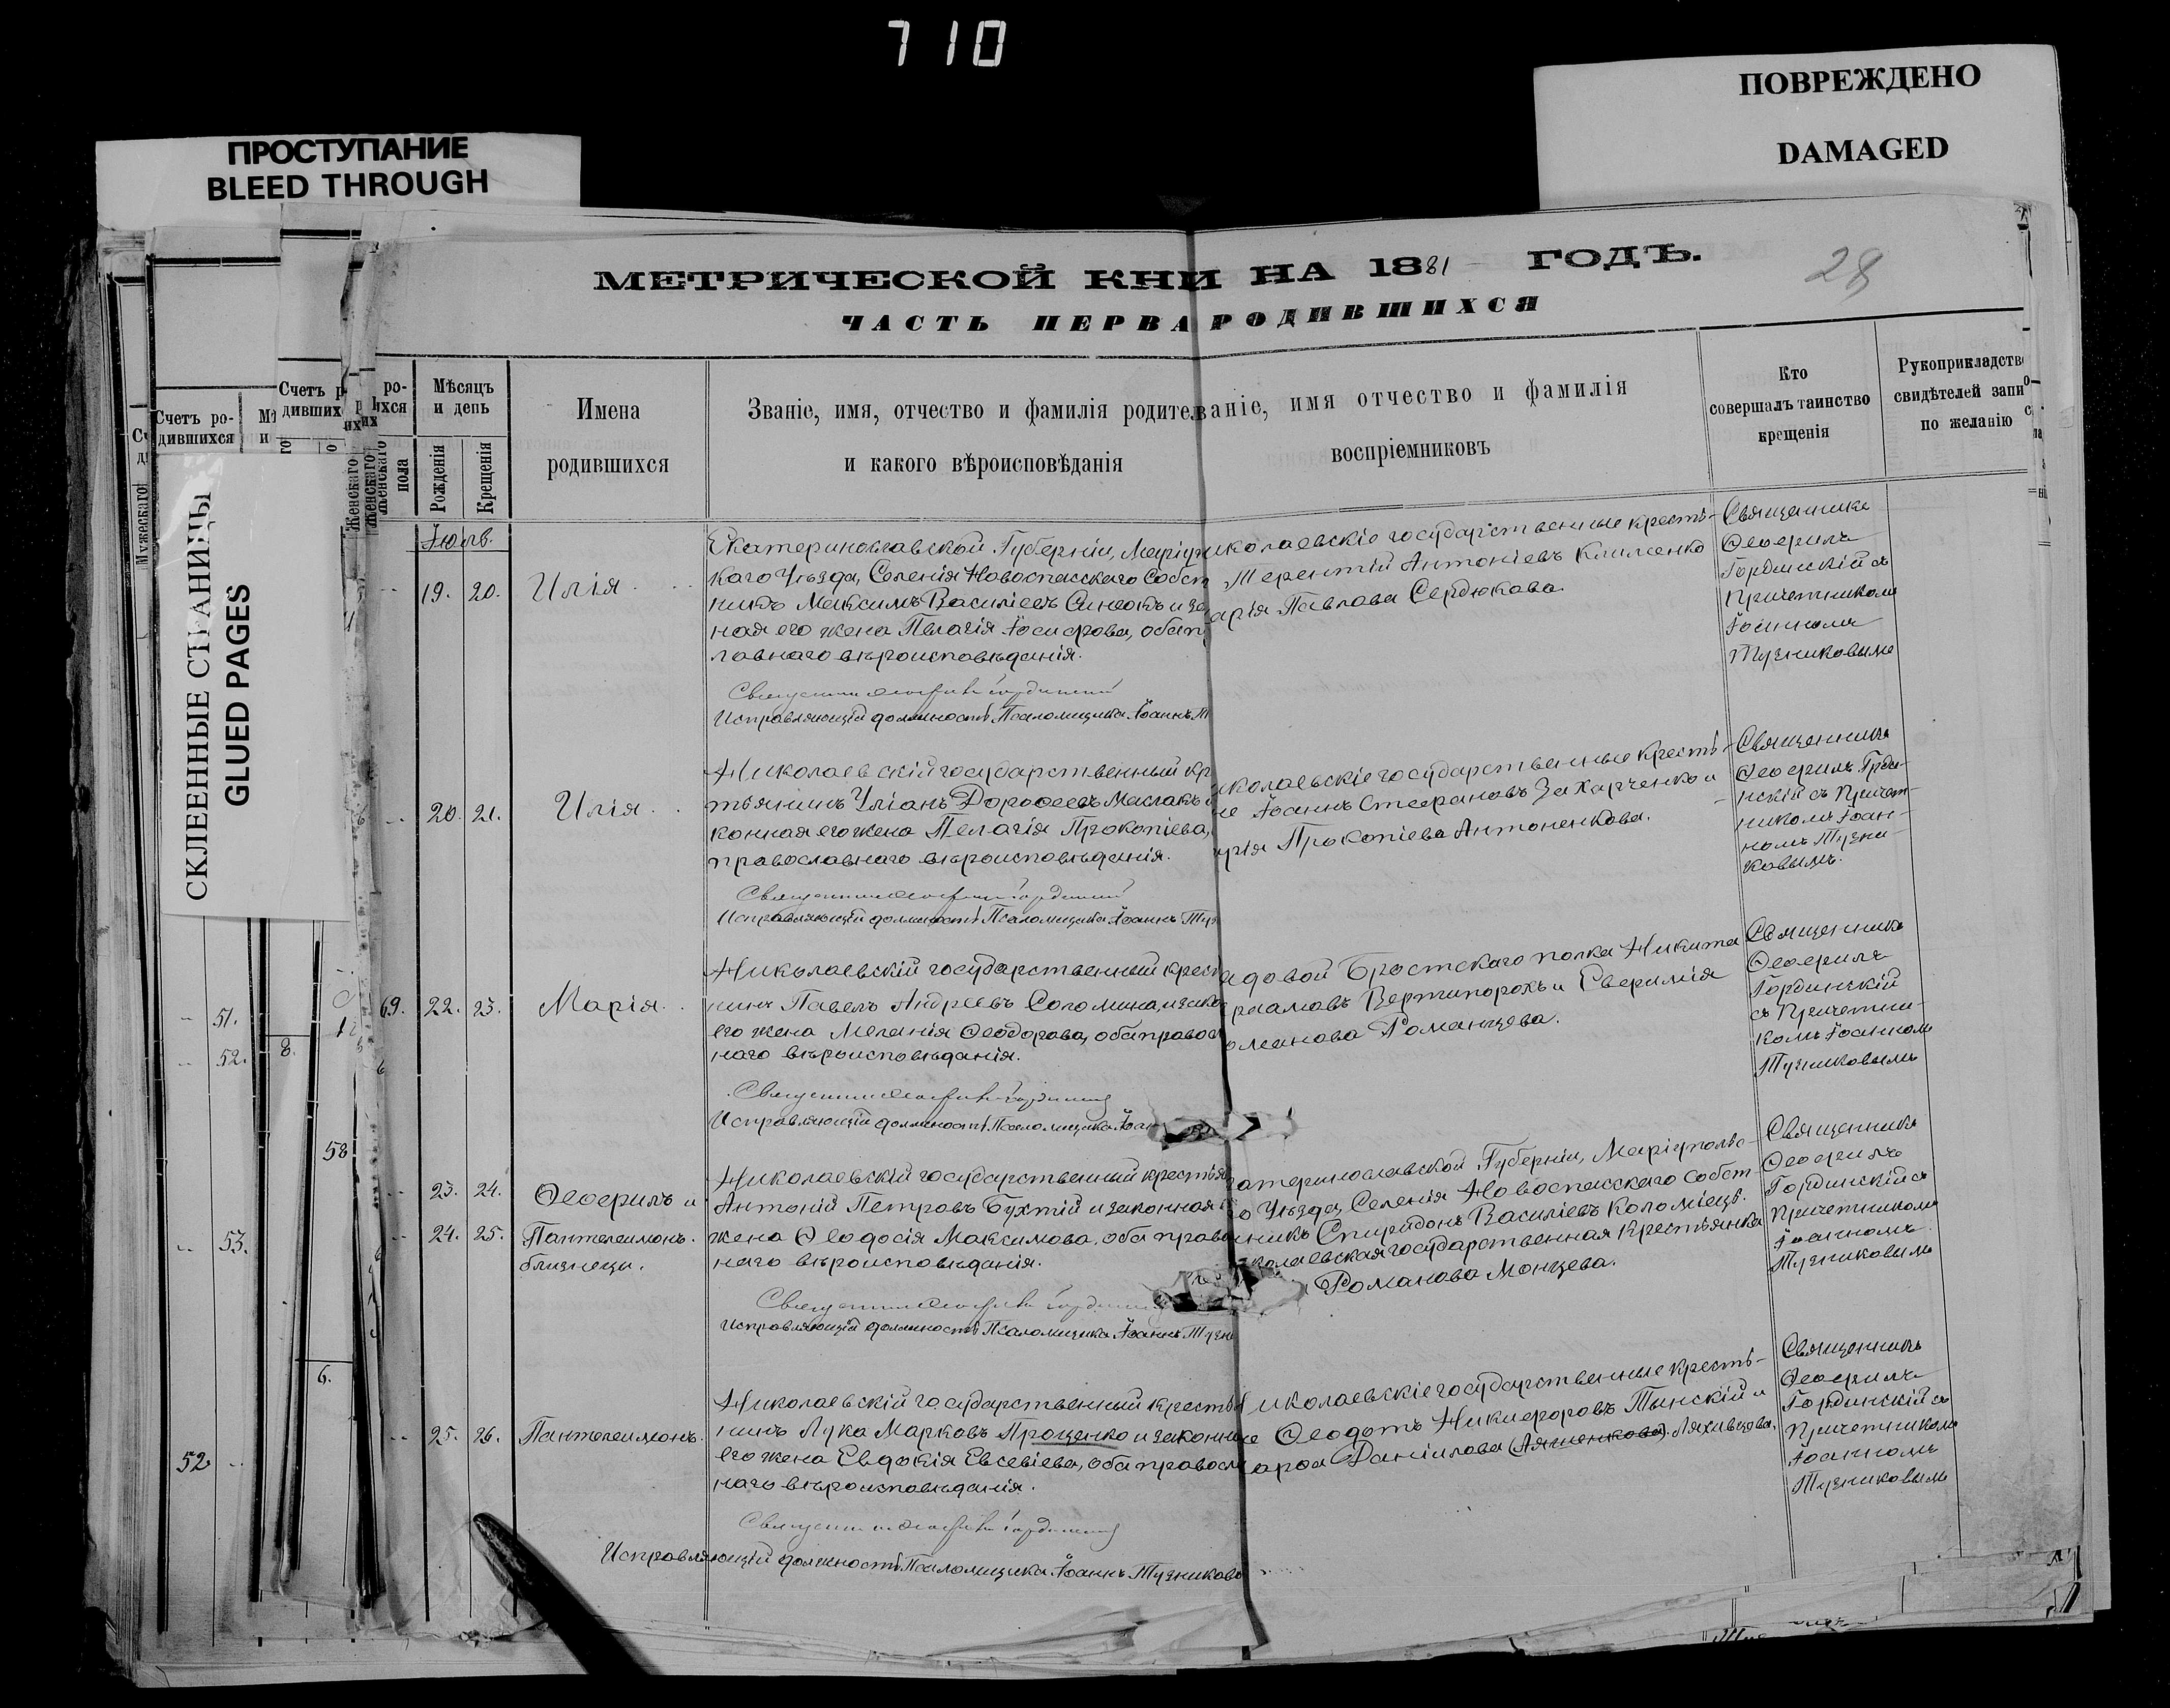 710
ПОВРЕЖДЕНО
DAMAGED
ПРОСТУПАНИЕ
BLEED THROUGH
СКЛЕЕННЫЕ СТРАНИЦЫ
GLUED PAGES
МЕТРИЧЕСКОЙ КНИ НА 1881 ГОДЪ.
28
ЧАСТЬ ПЕРВА РОДИВШИХСЯ
Счетъ ро-
дившихся
Мѣсяцъ
и день
Рожденія
Крещенія
Имена
родившихся
Званіе, имя, отчество и фамилія родител
и какого вѣроисповѣданія
ваніе, имя отчество и фамилія
воспріемниковъ
Кто
совершалъ таинство
крещенія
Рукоприкладств
свидѣтелей запи
по желанію
Мужескаго
Женскаго
пола
Іюль.
19. 20. Илія
Екатеринославской Губерніи, Маріуп
каго Уѣзда, Селенія Новоспасскаго Собст
никъ Максимъ Василіевъ Синеокъ и за
ная его жена Пелагія Іосифова, оба п
лавнаго вѣроисповѣданія.
Исправляющій должность Псаломщика Іоаннъ Т
иколаевскіе государственные кресть-
Терентій Антоніевъ Клименко
арія Павлова Сердюкова.
Священникъ
Ѳеофилъ
Гординскій съ
Причетникомъ
Іоанномъ
Тузниковымъ
20. 21. Илія
Николаевскій государственный кр
тьянинъ Уліанъ Дороѳеевъ Маслакъ и
конная его жена Пелагія Прокопіева,
православнаго вѣроисповѣданія.
Исправляющій должность Псаломщика Іоаннъ Туз
иколаевскіе государственные кресть-
не Іоаннъ Стефановъ Захарченко и
арія Прокопіева Антоненкова.
Священникъ
Ѳеофилъ Горди-
нскій съ Причет-
никомъ Іоан-
номъ Тузни-
ковымъ.
69. 22. 23. Марія
Николаевскій государственный крест
нинъ Павелъ Андреевъ Соломина, и зако
его жена Меланія Ѳеодорова, оба правос
наго вѣроисповѣданія.
Исправляющій должность Псаломщика Іоан
адовой Брестскаго полка Никита
Вертипорохъ и Евфимія
оманова Романцева.
Священникъ
Ѳеофилъ
Гординскій
съ Причетни-
комъ Іоанномъ
Тузниковымъ
23. 24. Ѳеофилъ и
24. 25. Пантелеимонъ.
близнецы.
Николаевскій государственный крестья
Антоній Петровъ Бухтій и законная
жена Ѳеодосія Максимова, оба право
наго вѣроисповѣданія.
Исправляющій должность Псаломщика Іоаннъ Тузн
атеринославской Губерніи, Маріуполь-
о Уѣзда, Селенія Новоспасскаго Собст-
нникъ Спиридонъ Василіевъ Коломіецъ.
колаевская государственная Крестьянка
Романова Монцева.
Священникъ
Ѳеофилъ
Гординскій съ
Причетникомъ
Іоанномъ
Тузниковымъ
25. 26. Пантелеимонъ.
Николаевскій государственный кресть
нинъ Лука Марковъ Прощенко и законн
его жена Евдокія Евсевіева, оба правосл
наго вѣроисповѣданія.
Исправляющій должность Псаломщика Іоаннъ Тузниковъ
иколаевскіе государственные кресть-
не Ѳеодотъ Никифоровъ Тынскій и
Даніилова (Ляшенкова). Ляховцова.
Священникъ
Ѳеофилъ
Гординскій съ
Причетникомъ
Іоанномъ
Тузниковымъ
51.
52.
8.
58
53.
6.
52